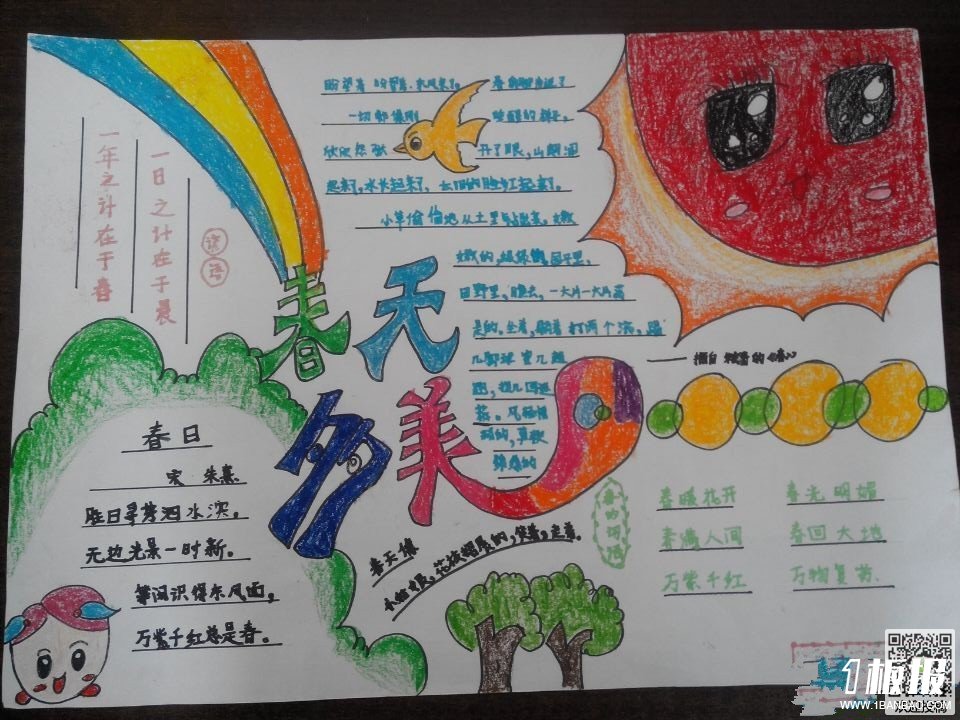 一年之计在于春
一日之计在于晨
谚语
春天多美
盼望着 盼望着.东风来了。 春天的脚步近了
一切都像刚 睡醒的样子。
欣欣然张 开了眼,山朗润
起来了,水长起来了、太阳的脸红起来了。
小草偷偷地从土里钻出来,嫩
嫩的,绿绿的,园子里,
田野里,瞧去,一大片一大片满
是的。坐着,躺着 打两个滚,踢
几脚球 赛几趟
跑,捉几回迷
藏。风轻悄
悄的,草软
绵绵的
—— 摘自 朱自清的《春》
春日
宋 朱熹
胜日寻芳泗水滨,
无边光景一时新。
等闲识得东风面,
万紫千红总是春。
春天像
小姑娘,花枝招展的,笑着,走着。
春的词语
春暖花开 春光明媚
春满人间 春回大地
万紫千红 万物复苏
1板报
WWW.1BANBAO.COM